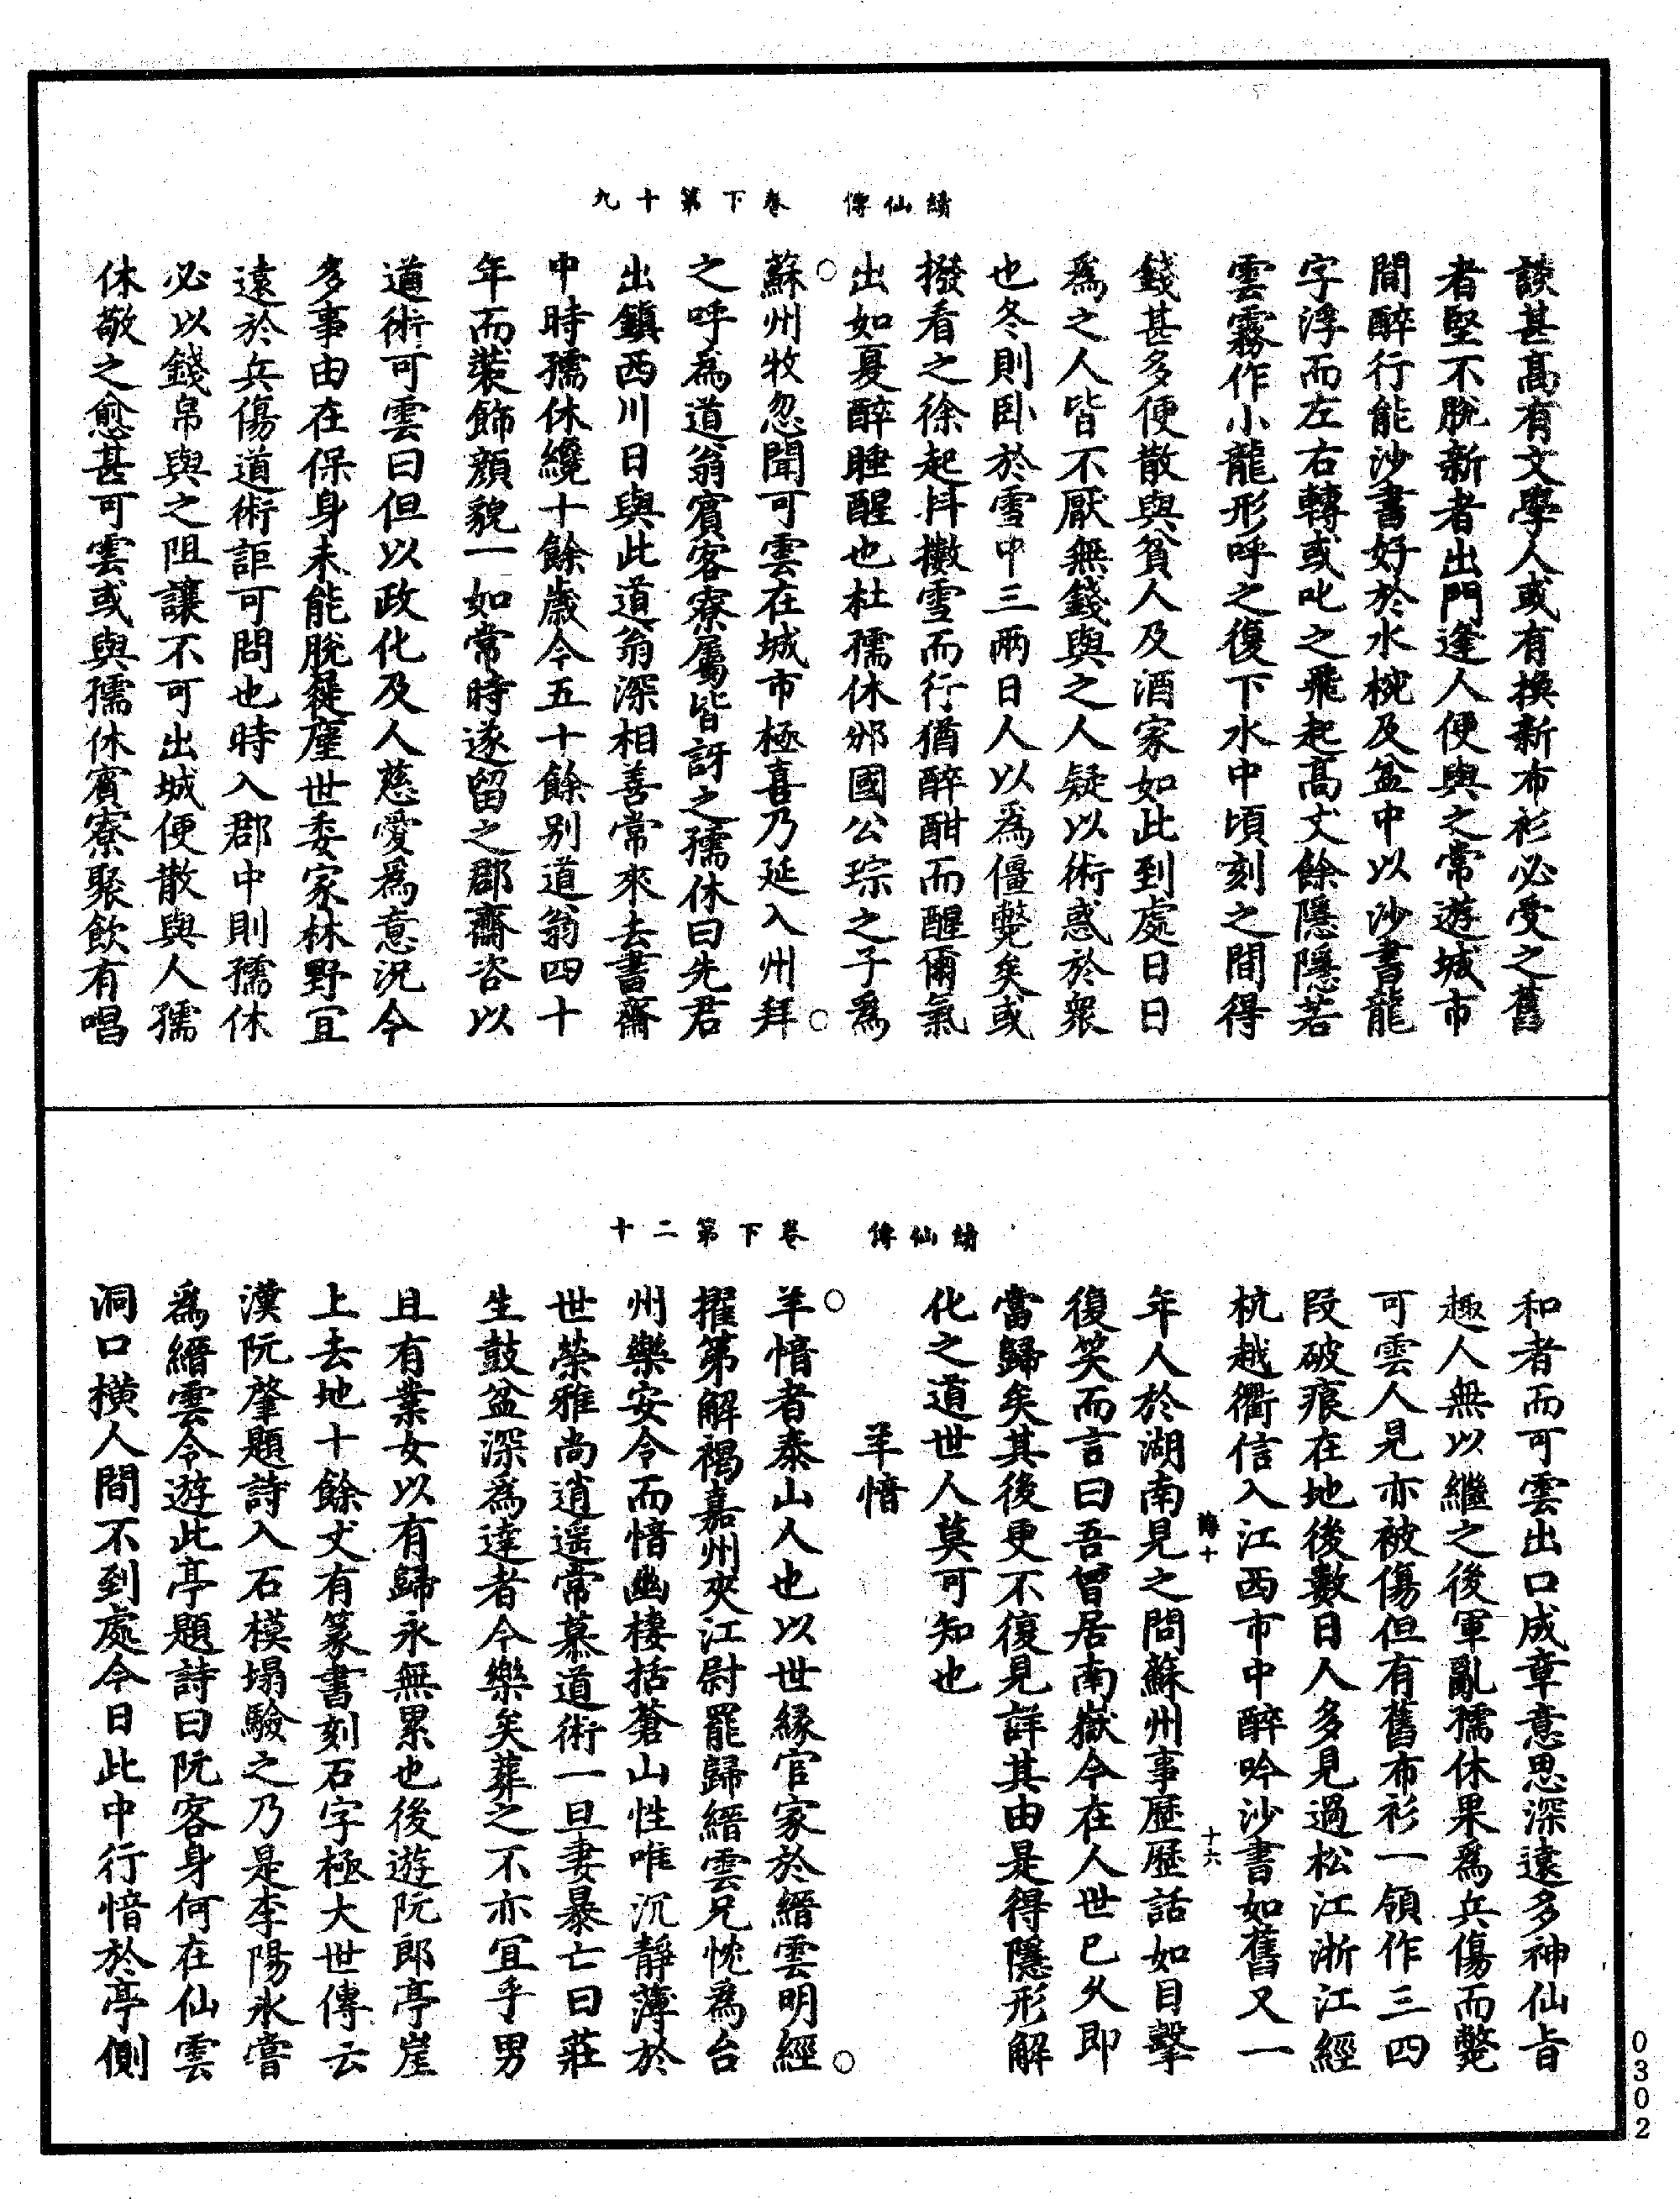 續仙傳　卷下第十九
談甚高有文學人或有換新布衫必受之舊
者堅不脫新者出門逢人便與之常遊城市
間醉行能沙書好於水椀及盆中以沙書龍
字浮而左右轉或叱之飛起高丈餘隱隱若
雲霧作小龍形呼之復下水中頃刻之間得
錢甚多便散與貧人及酒家如此到處日日
爲之人皆不厭無錢與之人疑以術惑於衆
也冬則卧於雪中三兩日人以爲僵斃矣或
撥看之徐起抖擻雪而行猶醉酣而醒爾氣
出如夏醉睡醒也杜孺休邠國公琮之子爲
蘇州牧忽聞可雲在城市極喜乃延入州拜
之呼爲道翁賓客寮屬皆訝之孺休曰先君
出鎮西川日與此道翁深相善常來去書齋
中時孺休纔十餘歲今五十餘别道翁四十
年而裝飾顔貌一如常時遂留之郡齋咨以
道術可雲曰但以政化及人慈愛爲意況今
多事由在保身未能脫屣塵世委家林野冝
遠於兵傷道術詎可問也時入郡中則孺休
必以錢帛與之阻讓不可出城便散與人孺
休敬之愈甚可雲或與孺休賓寮聚飲有唱
續仙傳　卷下第二十
和者而可雲出口成章意思深遠多神仙旨
趣人無以繼之後軍亂孺休果爲兵傷而斃
可雲人見亦被傷但有舊布衫一領作三四
段破痕在地後數日人多見過松江浙江經
杭越衢信入江西市中醉吟沙書如舊又一
傳十　十六
年人於湖南見之問蘇州事歷歷話如目擊
復笑而言曰吾曾居南嶽今在人世已久即
當歸矣其後更不復見詳其由是得隱形解
化之道世人莫可知也
羊愔
羊愔者泰山人也以世緣官家於縉雲明經
擢第解褐嘉州夾江尉罷歸縉雲兄忱爲台
州樂安令而愔幽棲括蒼山性唯沉靜薄於
世榮雅尚逍遥常慕道術一旦妻暴亡曰莊
生鼓盆深爲達者今樂矣葬之不亦冝乎男
且有業女以有歸永無累也後遊阮郎亭崖
上去地十餘丈有篆書刻石字極大世傳云
漢阮肇題詩入石模塌驗之乃是李陽氷嘗
爲縉雲令遊此亭題詩曰阮客身何在仙雲
洞口橫人間不到處今日此中行愔於亭側
0302